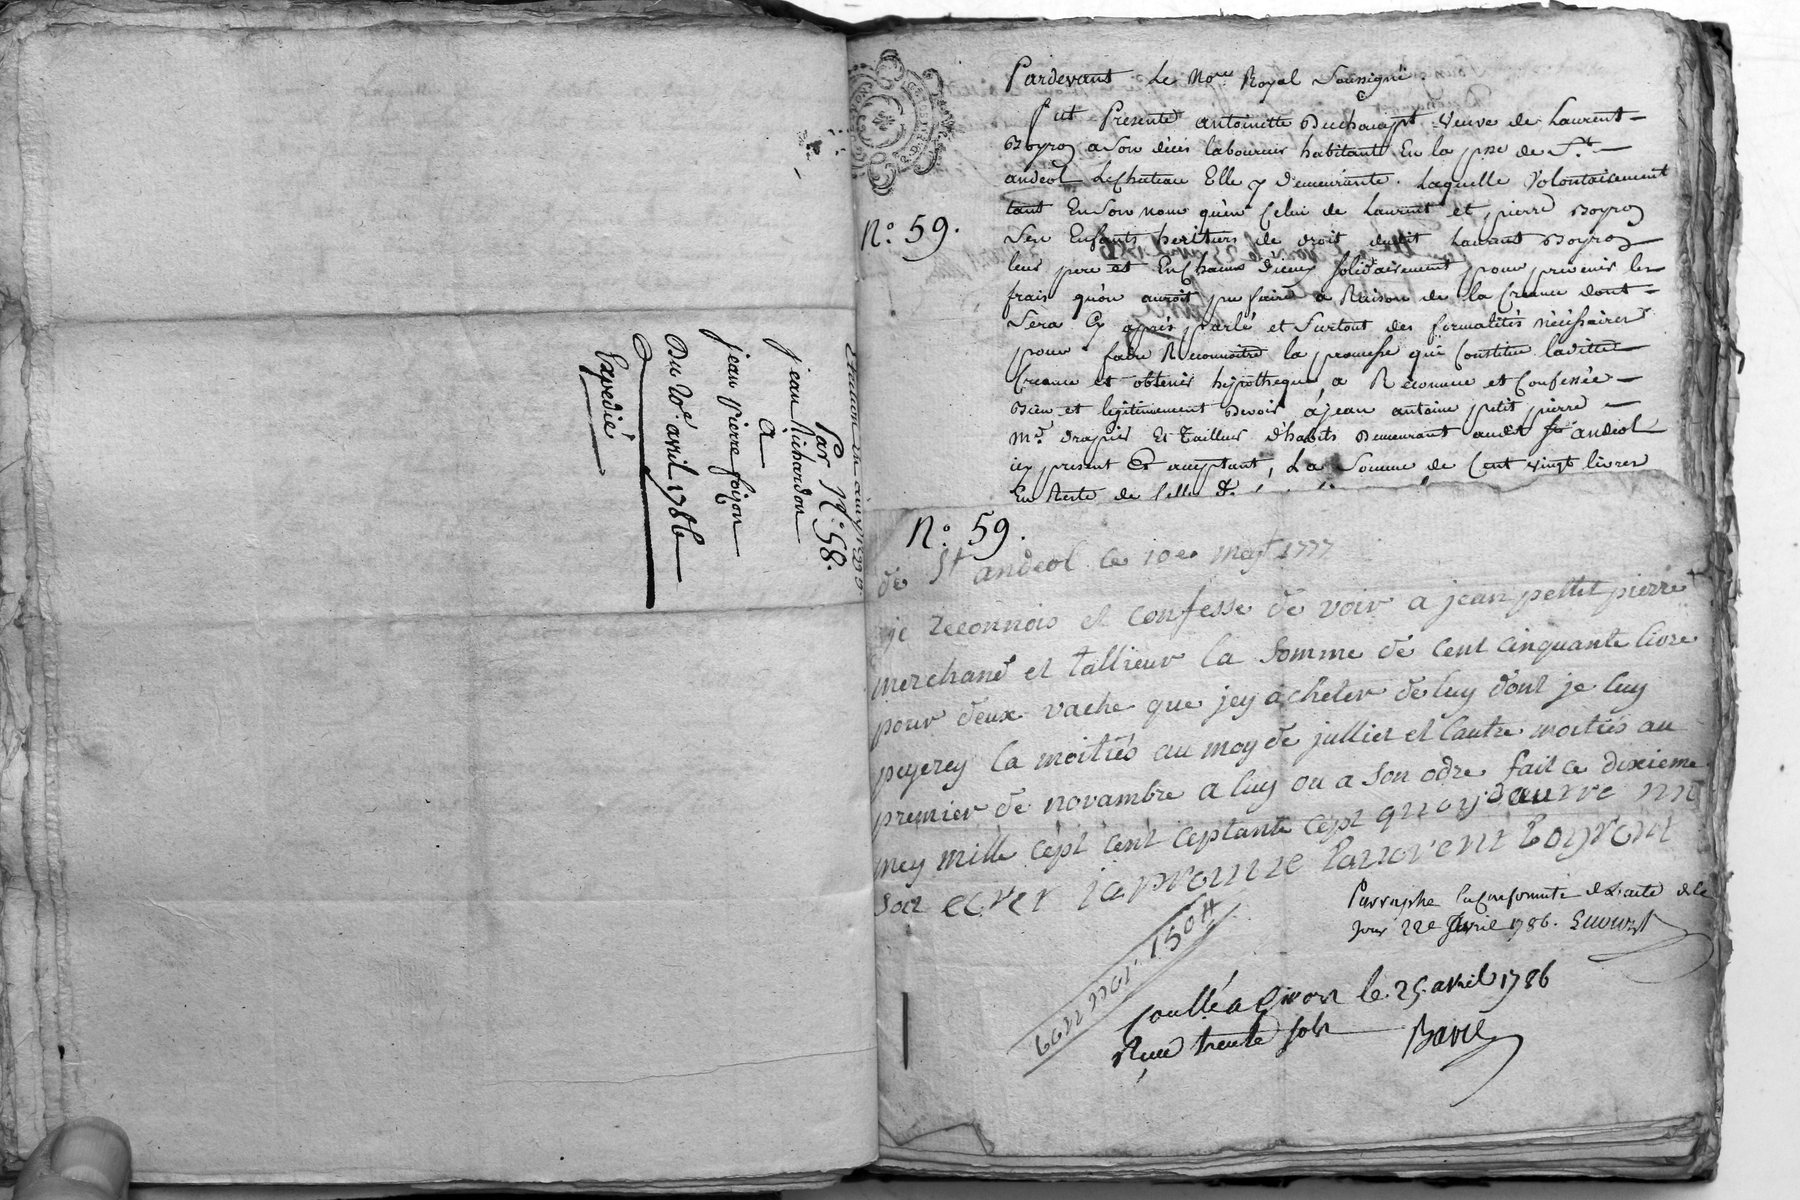 Par N.º 58.
jean Richardon
a
jean pierre foizon
Du 20.e avril 1786
Expedié
N.º 59.
Pardevant Le No.re Royal Sousigné
fut Presente antoinette Duchampt veuve de Laurent
Boyron a Son vivant laboureur habitante En la p.sse de S.t
andéol Le Chateau Elle y demeurante. Laquelle Volontairement
tant En Son nom qu'en Celui de Laurent et pierre Boyron
Ses Enfants heritiers de droit dudit Laurent Boyron
leur pere et En chacun d'ieux Solidairement pour prevenir les
frais qu'on auroit pu faire a Raison de la Creance dont
Sera Cy après parlé et Surtout des formalités nécéssaires
pour faire Reconnoitre la promesse qui Constitue laditte
Creance et obtenir hypotheque, a Reconnue et Confessée
Bien et legitimement Devoir à jean antoine petit pierre
M.d drapier Et Tailleur d'habits Demeurant audit St andéol
icy present Et acceptant, La Somme de Cent vingt livres
En Reste de Celle &.
N.º 59.
de St andéol ce 10e mey 1777
je reconnois et confesse de voir a jean pettit pierre
merchand et tallieur la somme de cent cinquante livre
pour deux vache que jey acheter de luy dont je luy
peyerey la moitiés au moy de jullier et lautre moitiés au
premier de novambre a luy ou a son odre fait ce dixieme
mey mille cept cent ceptante cept quoy dautre min
soit ecrer japrouve laurent boyront
Parraphe En Conformité de L'acte de ce
Jour 22e Avril 1786.
bon por 150 ₶
Conllé a Givors le 25 avril 1786
Reçu trente sols